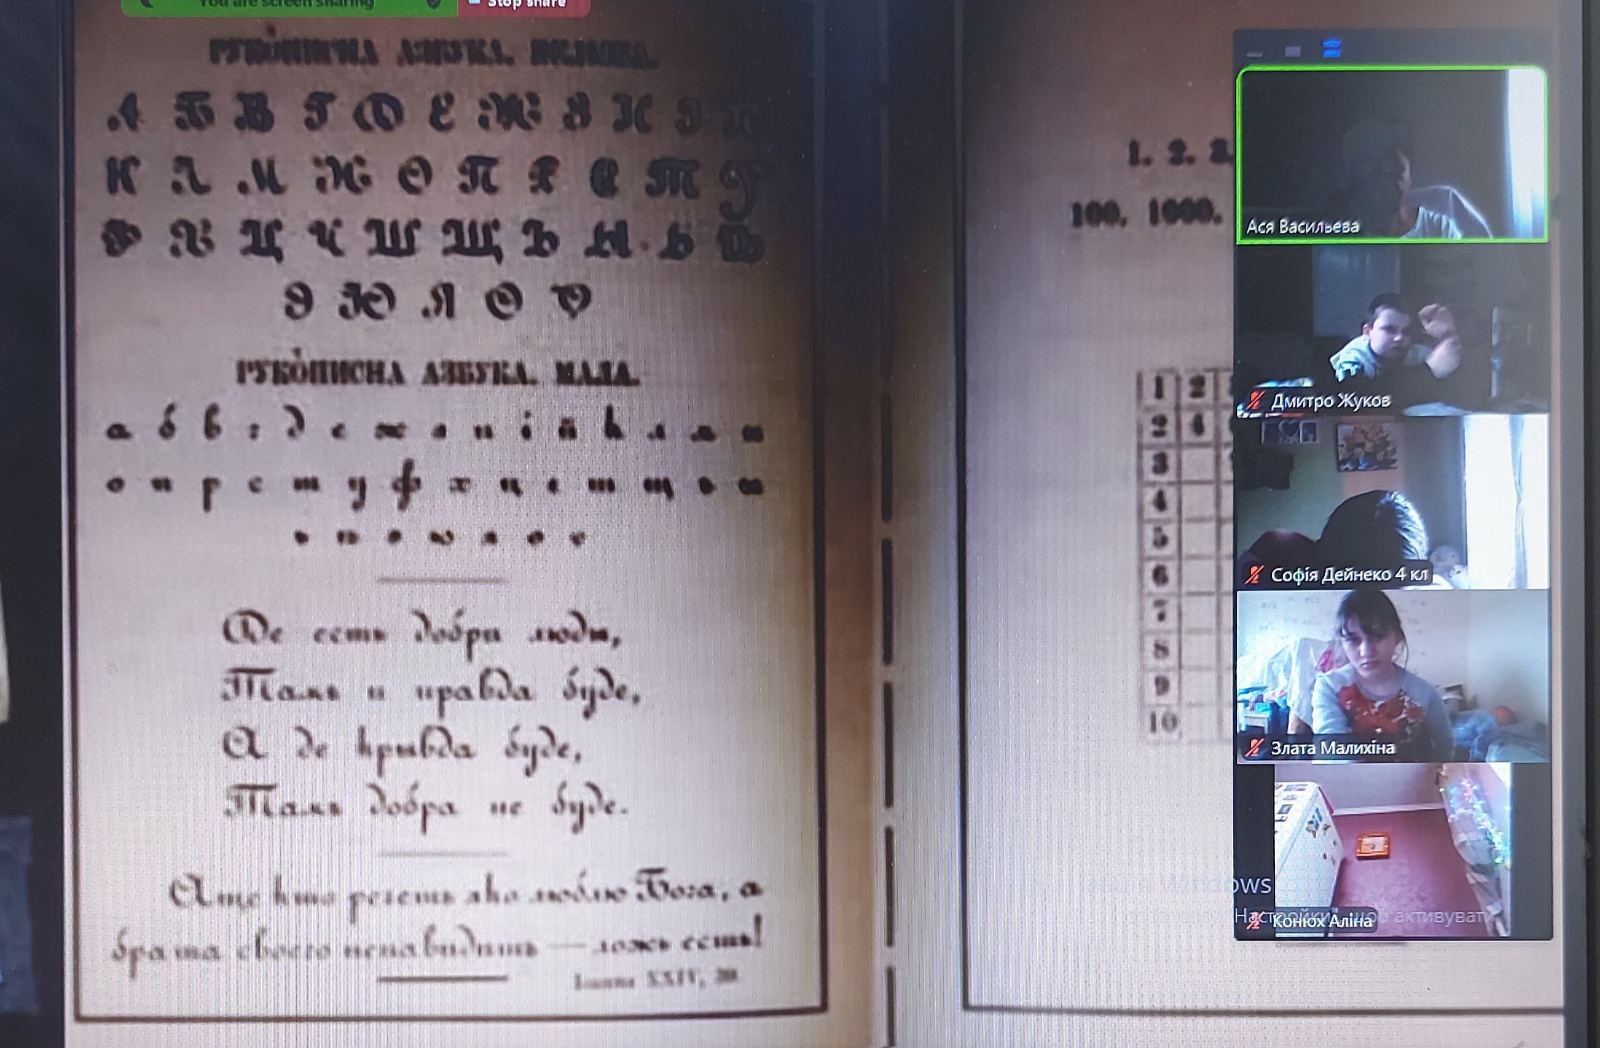 You are screen sharing
Stop share
РУКО́ПИСНА АЗБУКА. ВЕЛИКА.
А Б В Г Д Е Ж З И І Й
К Л М Н О П Р С Т У
Ф Х Ц Ч Ш Щ Ъ Ы Ь Ѣ
Э Ю Я Ѳ Ѵ
РУКО́ПИСНА АЗБУКА. МАЛА.
а б в г д е ж з и і й к л м н
о п р с т у ф х ц ч ш щ ъ ы
ь ѣ э ю я ѳ ѵ
Де есть добри люди,
Тамъ и правда буде,
А де кривда буде,
Тамъ добра не буде.
Аще кто речетъ яко люблю Бога, а
брата своего ненавидитъ — ложъ есть!
Іоанна XXIV, 20.
1. 2. 3.
100. 1000.
1 2
2 4
3
4
5
6
7
8
9
10
Ася Васильева
Дмитро Жуков
Софія Дейнеко 4 кл
Злата Малихіна
Конюх Аліна
Windows
"Настройки", щоб активувати